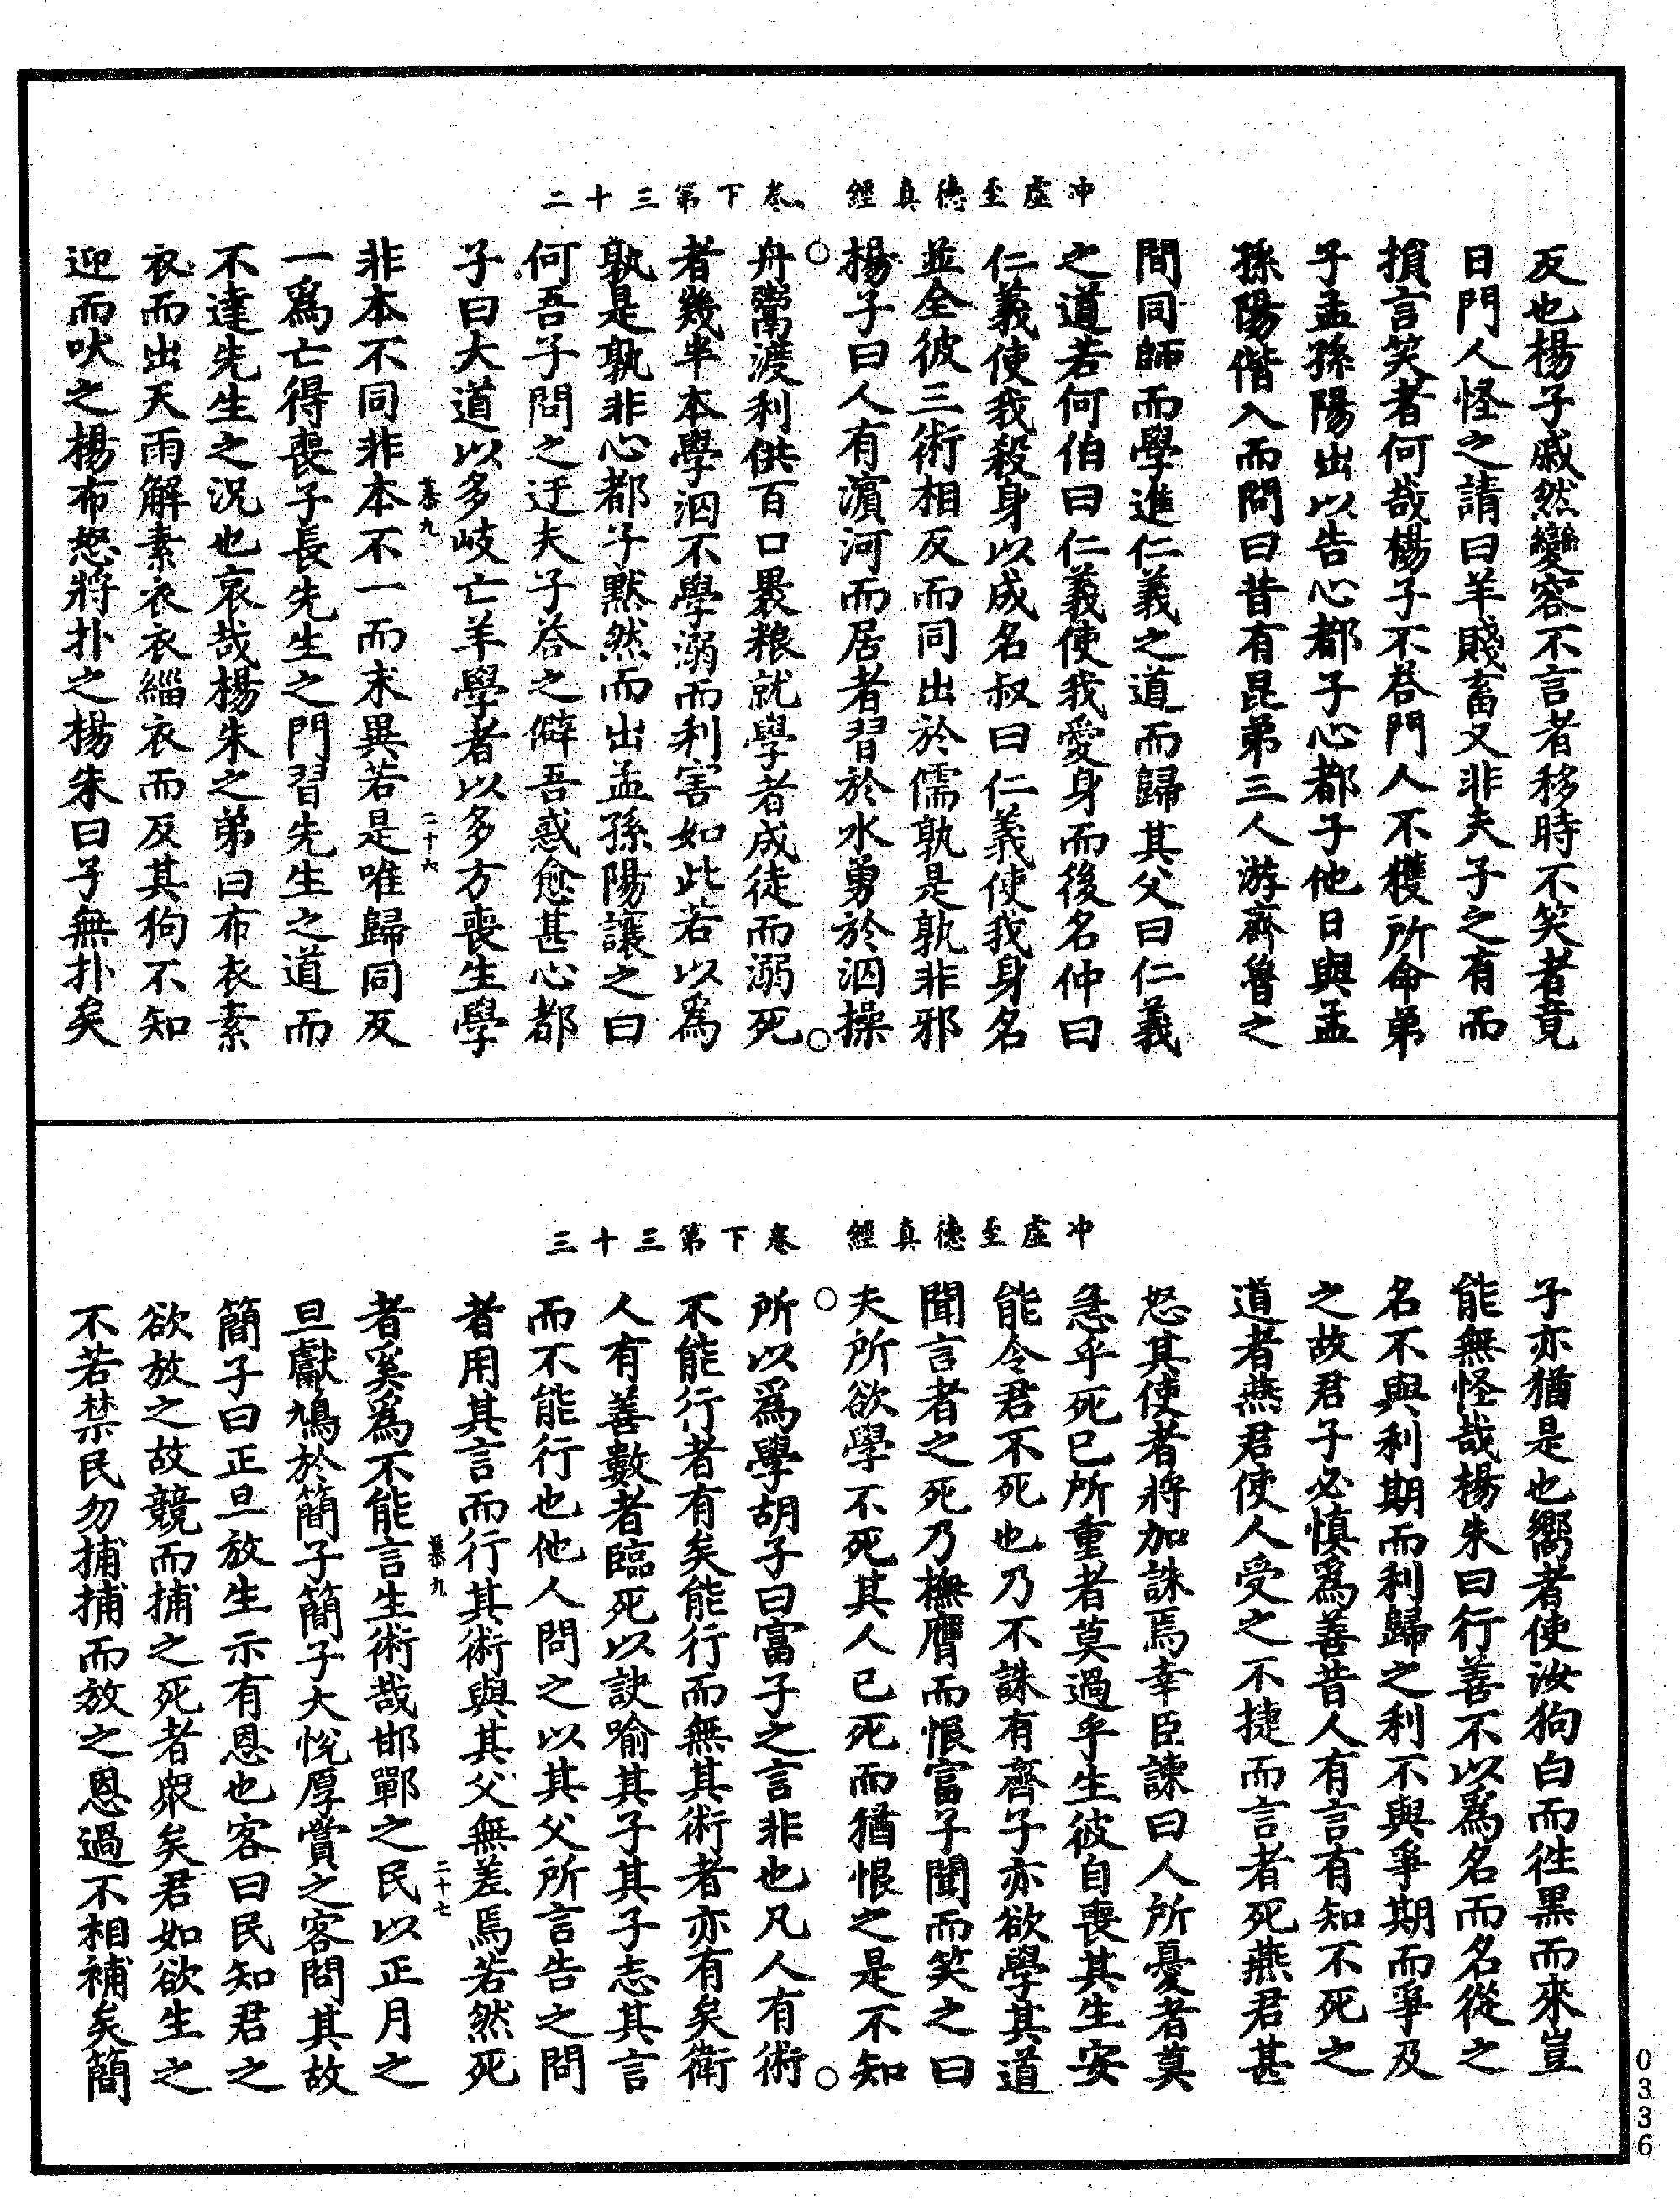 冲虛至德真經　卷下第三十二
反也楊子戚然變容不言者移時不笑者竟
日門人怪之請曰羊賤畜又非夫子之有而
損言笑者何哉楊子不荅門人不獲所命弟
子孟孫陽出以告心都子心都子他日與孟
孫陽偕入而問曰昔有昆弟三人游齊魯之
間同師而學進仁義之道而歸其父曰仁義
之道若何伯曰仁義使我愛身而後名仲曰
仁義使我殺身以成名叔曰仁義使我身名
並全彼三術相反而同出於儒孰是孰非邪
楊子曰人有濵河而居者習於水勇於泅操
舟鬻渡利供百口褁粮就學者成徒而溺死
者幾半本學泅不學溺而利害如此若以爲
孰是孰非心都子默然而出孟孫陽讓之曰
何吾子問之迂夫子荅之僻吾惑愈甚心都
子曰大道以多岐亡羊學者以多方喪生學
慕九　二十六
非本不同非本不一而末異若是唯歸同反
一爲亡得喪子長先生之門習先生之道而
不達先生之況也哀哉楊朱之弟曰布衣素
衣而出天雨解素衣衣緇衣而反其狗不知
迎而吠之楊布怒將扑之楊朱曰子無扑矣
冲虛至德真經　卷下第三十三
子亦猶是也嚮者使汝狗白而徃黑而來豈
能無怪哉楊朱曰行善不以爲名而名從之
名不與利期而利歸之利不與爭期而爭及
之故君子必慎爲善昔人有言有知不死之
道者燕君使人受之不捷而言者死燕君甚
怒其使者將加誅焉幸臣諫曰人所憂者莫
急乎死己所重者莫過乎生彼自喪其生安
能令君不死也乃不誅有齊子亦欲學其道
聞言者之死乃撫膺而恨富子聞而笑之曰
夫所欲學不死其人已死而猶恨之是不知
所以爲學胡子曰富子之言非也凡人有術
不能行者有矣能行而無其術者亦有矣衛
人有善數者臨死以訣喻其子其子志其言
而不能行也他人問之以其父所言告之問
者用其言而行其術與其父無差焉若然死
慕九　二十七
者奚爲不能言生術哉邯鄲之民以正月之
旦獻鳩於簡子簡子大悅厚賞之客問其故
簡子曰正旦放生示有恩也客曰民知君之
欲放之故競而捕之死者衆矣君如欲生之
不若禁民勿捕捕而放之恩過不相補矣簡
0336